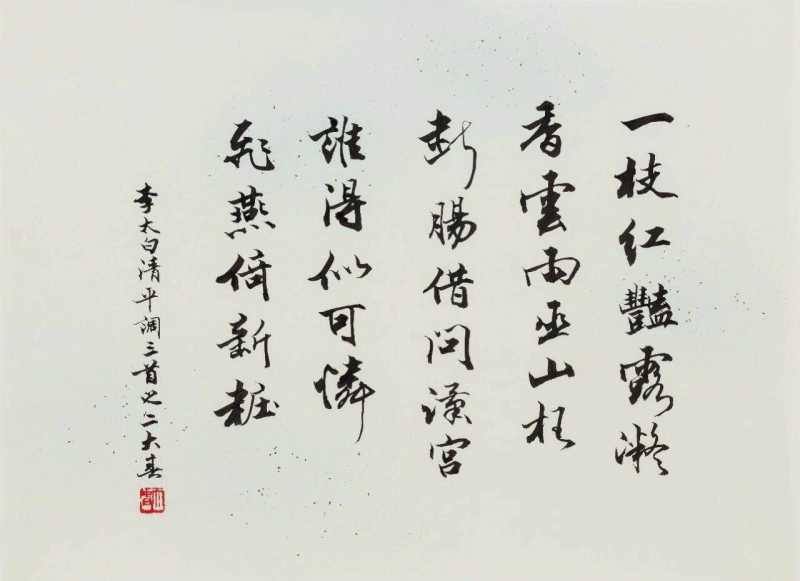 一枝紅豔露凝
香雲雨巫山枉
斷腸借問漢宮
誰得似可憐
飛燕倚新粧
李太白清平調三首之二大春